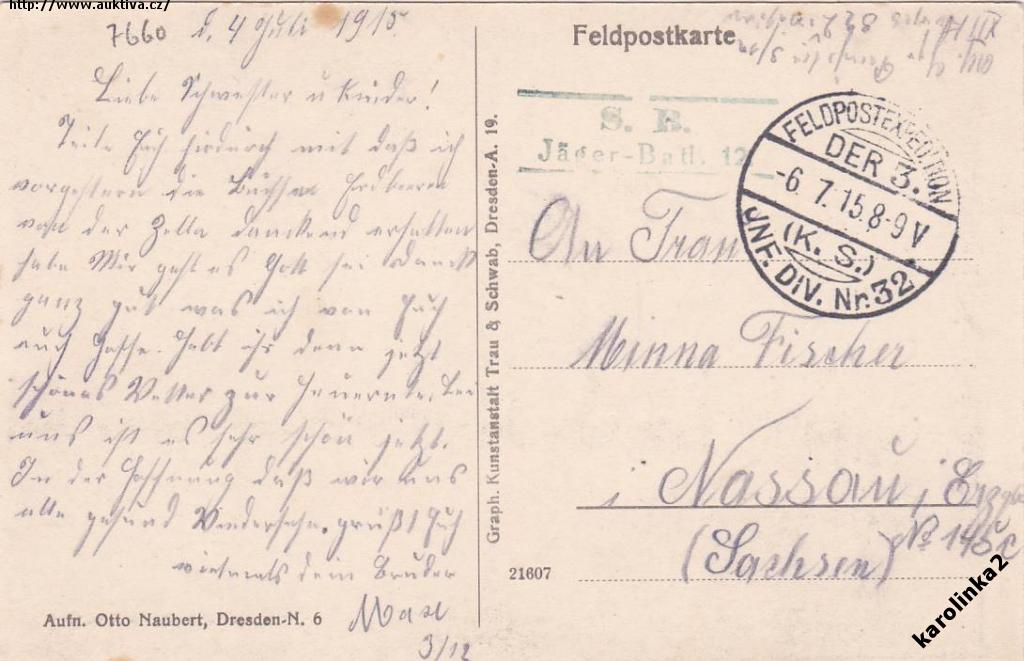 http://www.auktiva.cz/
7660
d. 4 Juli 1915
Liebe Schwester u Kinder!
Teile Euch hirdurch mit daß ich
vorgestern die Büchsen Erdbeeren
von der Zella dankend erhalten
habe Mir geht es Gott sei Dank
ganz gut was ich von Euch
auch hoffe. Habt ihr denn jetzt
schönes Wetter zur Heuernte, bei
uns ist es sehr schön jetzt.
In der Hoffnung daß wir uns
alle gesund Wiedersehn. grüßt Euch
vielmals dein Bruder
Max
3/12
Aufn. Otto Naubert, Dresden-N. 6
Graph. Kunstanstalt Trau & Schwab, Dresden-A. 19.
Feldpostkarte
XII
32
3/12
S. B.
Jäger-Batl. 12
FELDPOSTEXPEDITION
DER 3.
-6. 7. 15. 8-9 V
(K. S.)
JNF. DIV. Nr. 32
An Frau
Minna Fischer
i Nassau i Erzgb
No 145 c
(Sachsen)
21607
karolinka2